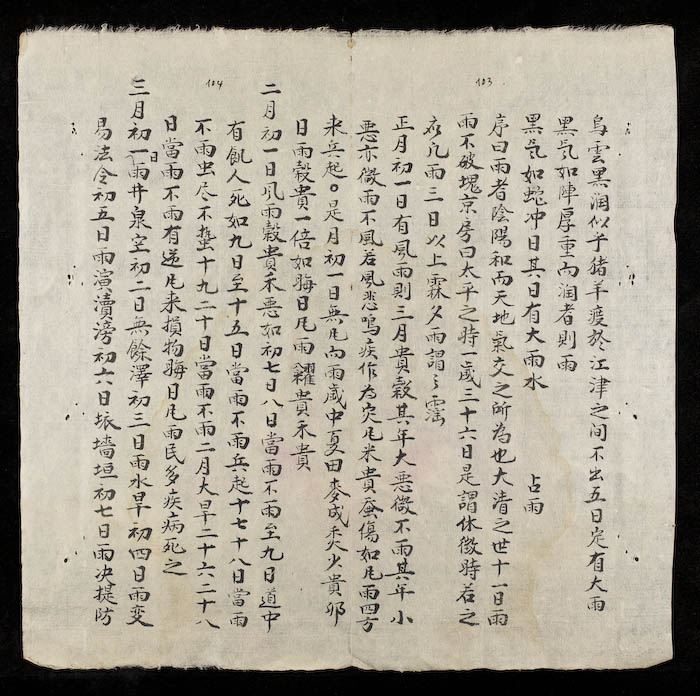 103
烏雲黑润似乎猪羊渡於江津之间不出五日定有大雨
黑氣如陣厚重而润者則雨
黑氣如蛇冲日其日有大雨水　占雨
序曰雨者陰陽和而天地氣交之所為也大清之世十一日雨
雨不破塊京房曰太平之時一歲三十六日是謂休徵時若之
凡雨三日以上霖夕雨謂之霪
正月初一日有風雨則三月貴穀其年大悪微不雨其年小
悪亦微雨不風若風悲鳴疾作為灾凢米貴蚕傷如凢雨四方
来兵起○是月初一日無凢而雨歲中夏田麥成禾少貴卯
日雨穀貴一倍如晦日凢雨糶貴禾貴
104
二月初一日风雨穀貴禾悪如初七日八日當雨不雨至九日道中
有飢人死如九日至十五日當雨不雨兵起十七十八日當雨
不雨虫尽不蟄十九二十日當雨不雨二月大旱二十六二十八
日當雨不雨有逆凢来損物晦日凢雨民多疾病死之
三月初一日雨井泉空初二日無餘澤初三日雨水旱初四日雨变
易法令初五日雨演瀆滂初六日垓墻垣初七日雨决提防